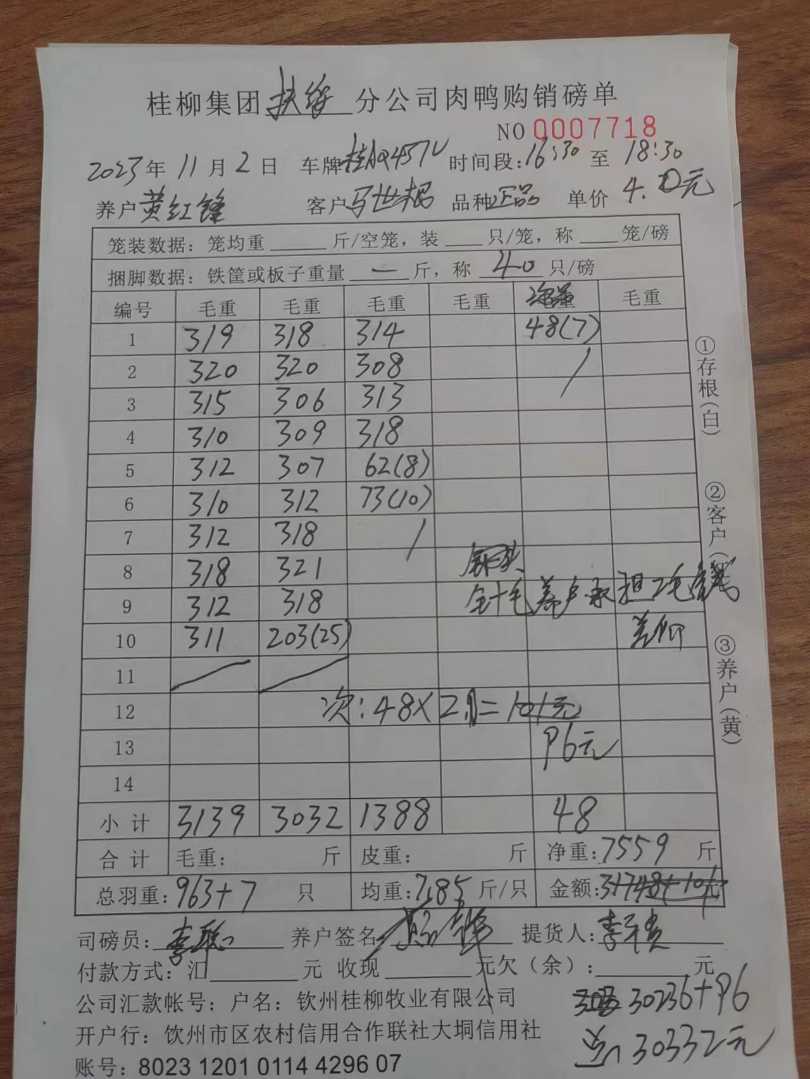 桂柳集团扶绥分公司肉鸭购销磅单
NO 0007718
2023年11月2日 车牌 时间段:16:30至18:30
养户黄红锋 客户马世 品种正品 单价4.0元
笼装数据：笼均重____斤/空笼，装___只/笼，称___笼/磅
捆脚数据：铁筐或板子重量 — 斤，称 40 只/磅
编号 毛重 毛重 毛重 毛重 毛重
1 319 318 314 48(7)
2 320 320 308 /
3 315 306 313
4 310 309 318
5 312 307 62(8)
6 310 312 73(10)
7 312 318 /
8 318 321
9 312 318 养户承担2毛
10 311 203(25) 差价
11
12 次:48×2.1=101元
13 96元
14
小计 3139 3032 1388 48
合计 毛重: 斤 皮重: 斤 净重:7559 斤
总羽重:963+7 只 均重:7.85斤/只 金额:31748+101
司磅员: 养户签名 提货人:李
付款方式：汇____元 收现____元欠（余）:____元
公司汇款帐号：户名：钦州桂柳牧业有限公司
30236+96
开户行：钦州市区农村信用合作联社大垌信用社
30332元
账号：8023 1201 0114 4296 07
①存根(白)
②客户
③养户(黄)